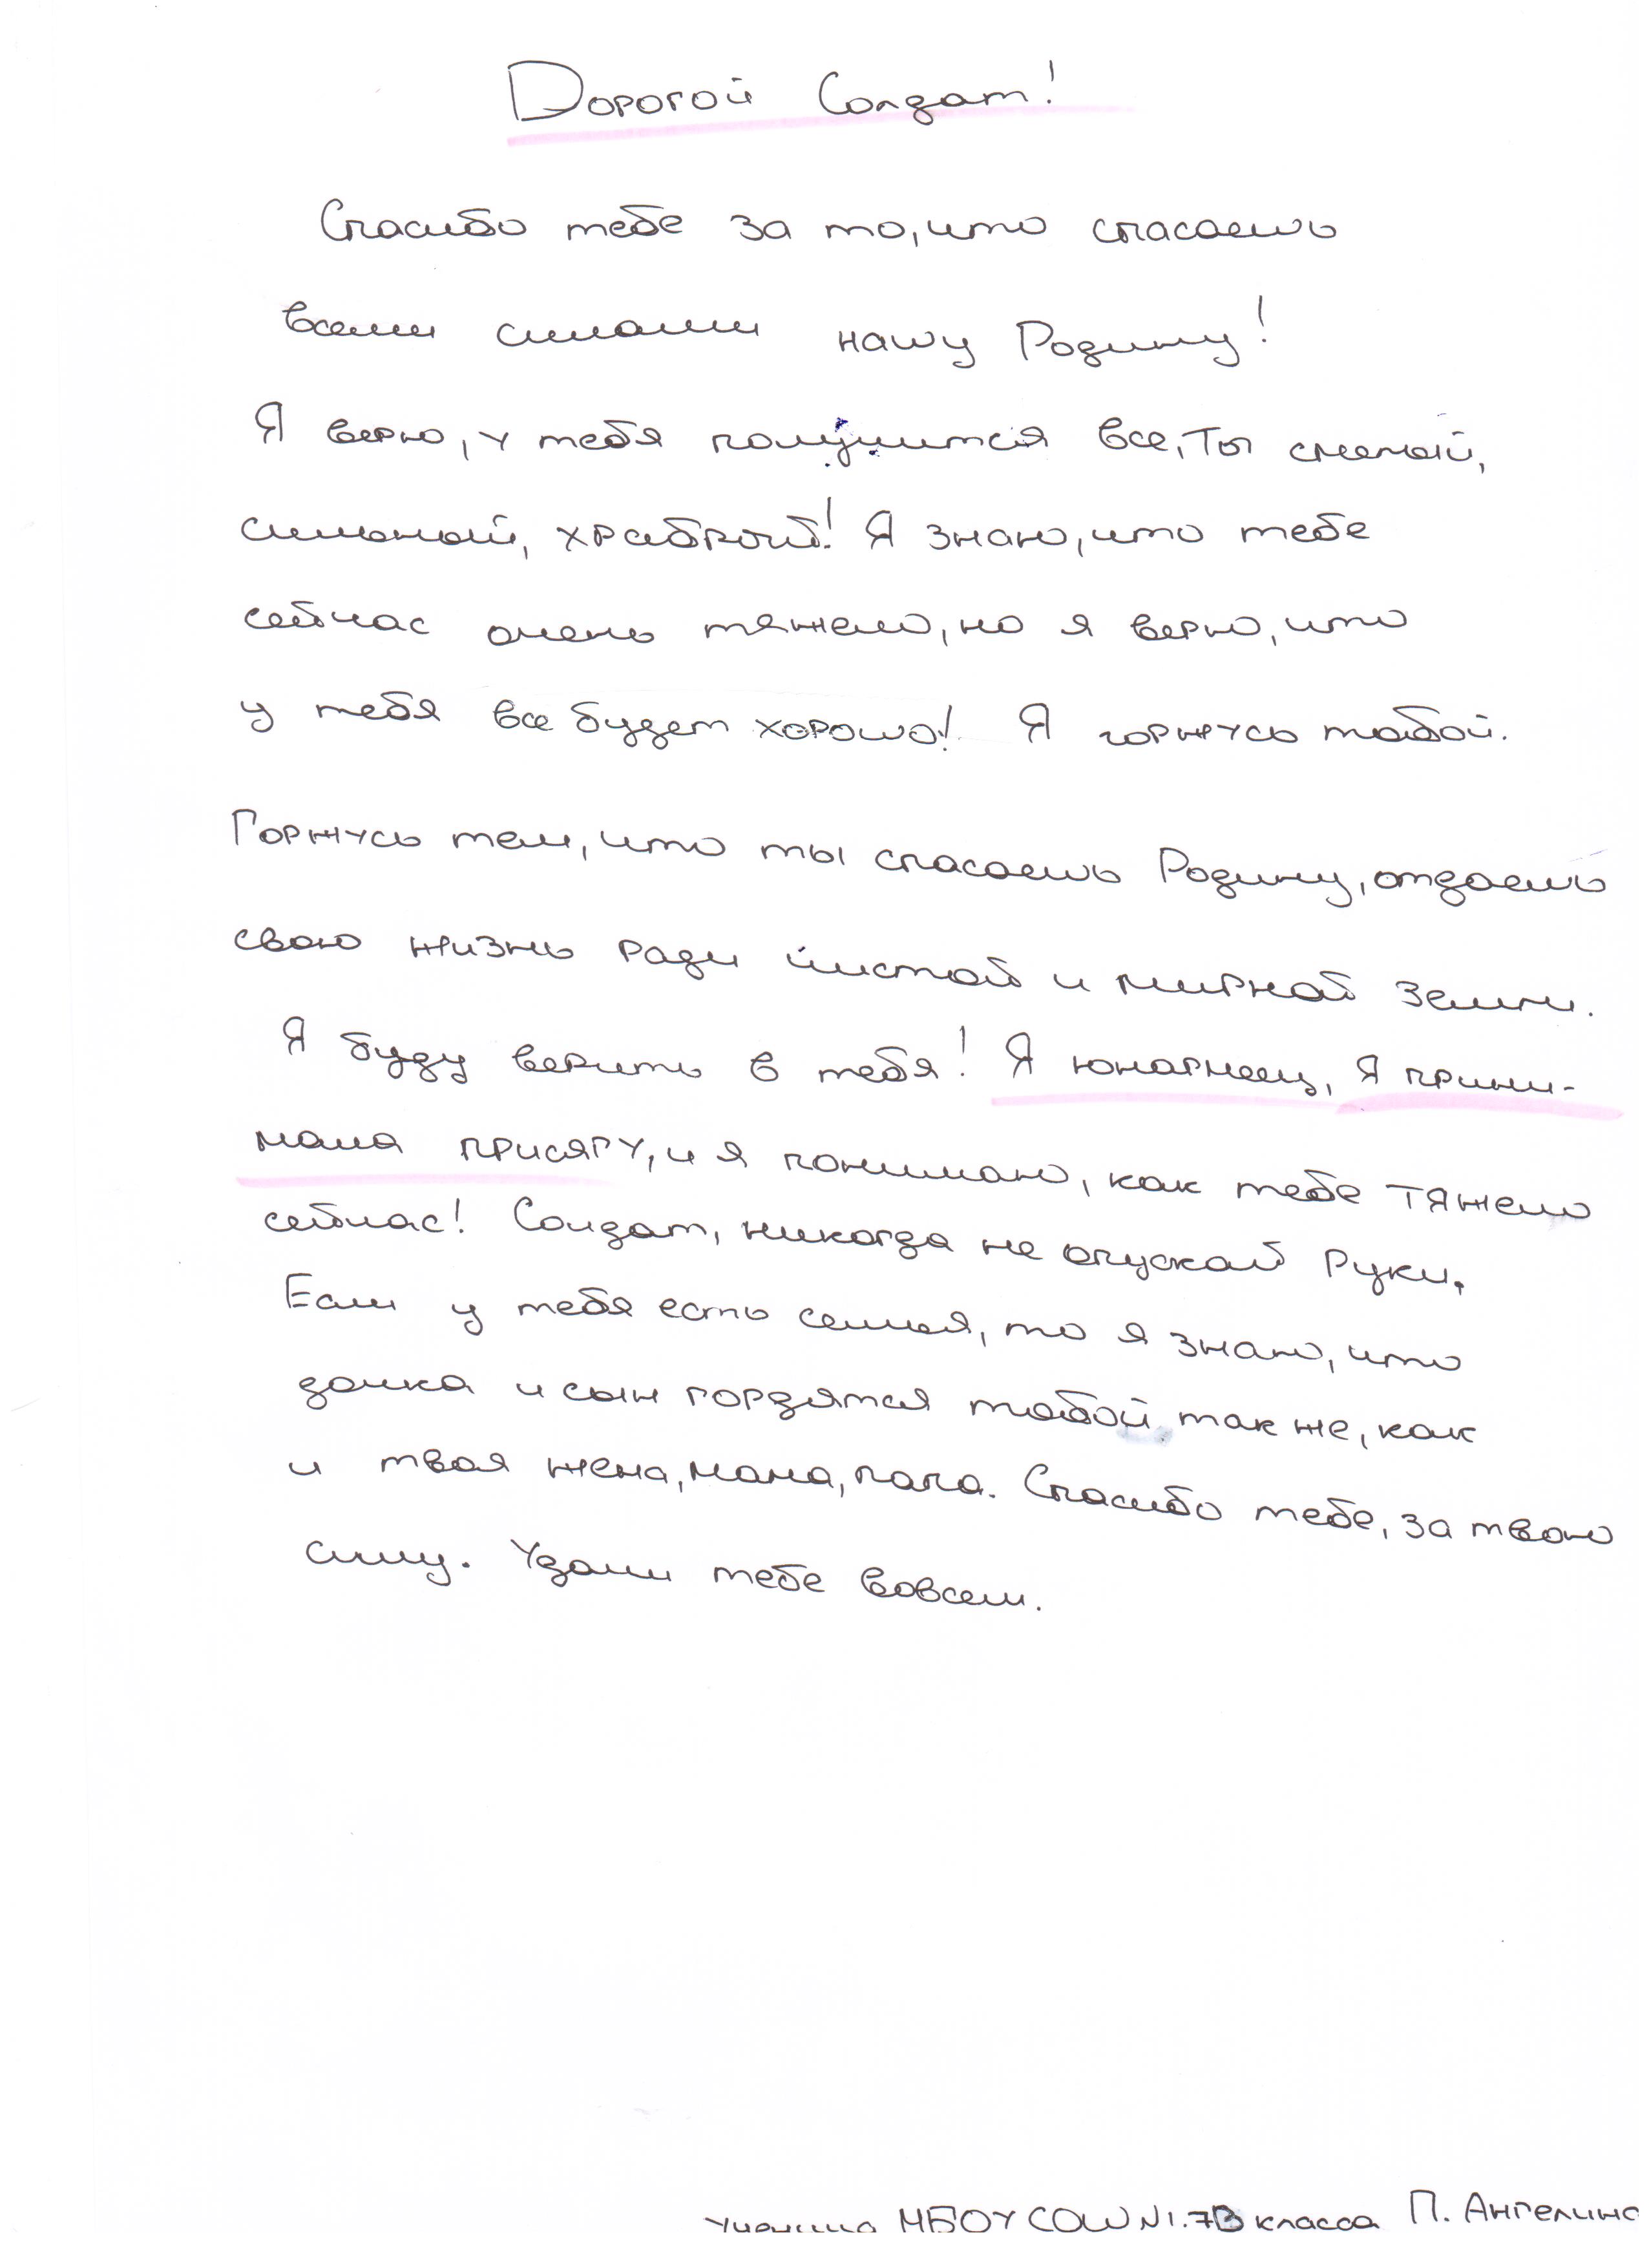 Дорогой Солдат!
Спасибо тебе за то, что спасаешь
всеми силами нашу Родину!
Я верю, у тебя получится все, ты смелый,
сильный, храбрый! Я знаю, что тебе
сейчас очень тяжело, но я верю, что
у тебя все будет хорошо! Я горжусь тобой.
Горжусь тем, что ты спасаешь Родину, отдаешь
свою жизнь ради чистой и мирной земли.
Я буду верить в тебя! Я юнармеец, я прини-
мала присягу, и я понимаю, как тебе тяжело
сейчас! Солдат, никогда не опускай руки.
Если у тебя есть семья, то я знаю, что
дочка и сын гордятся тобой так же, как
и твоя жена, мама, папа. Спасибо тебе, за твою
силу. Удачи тебе вовсем.
Ученица МБОУ СОШ №1. 7В класса П. Ангелина